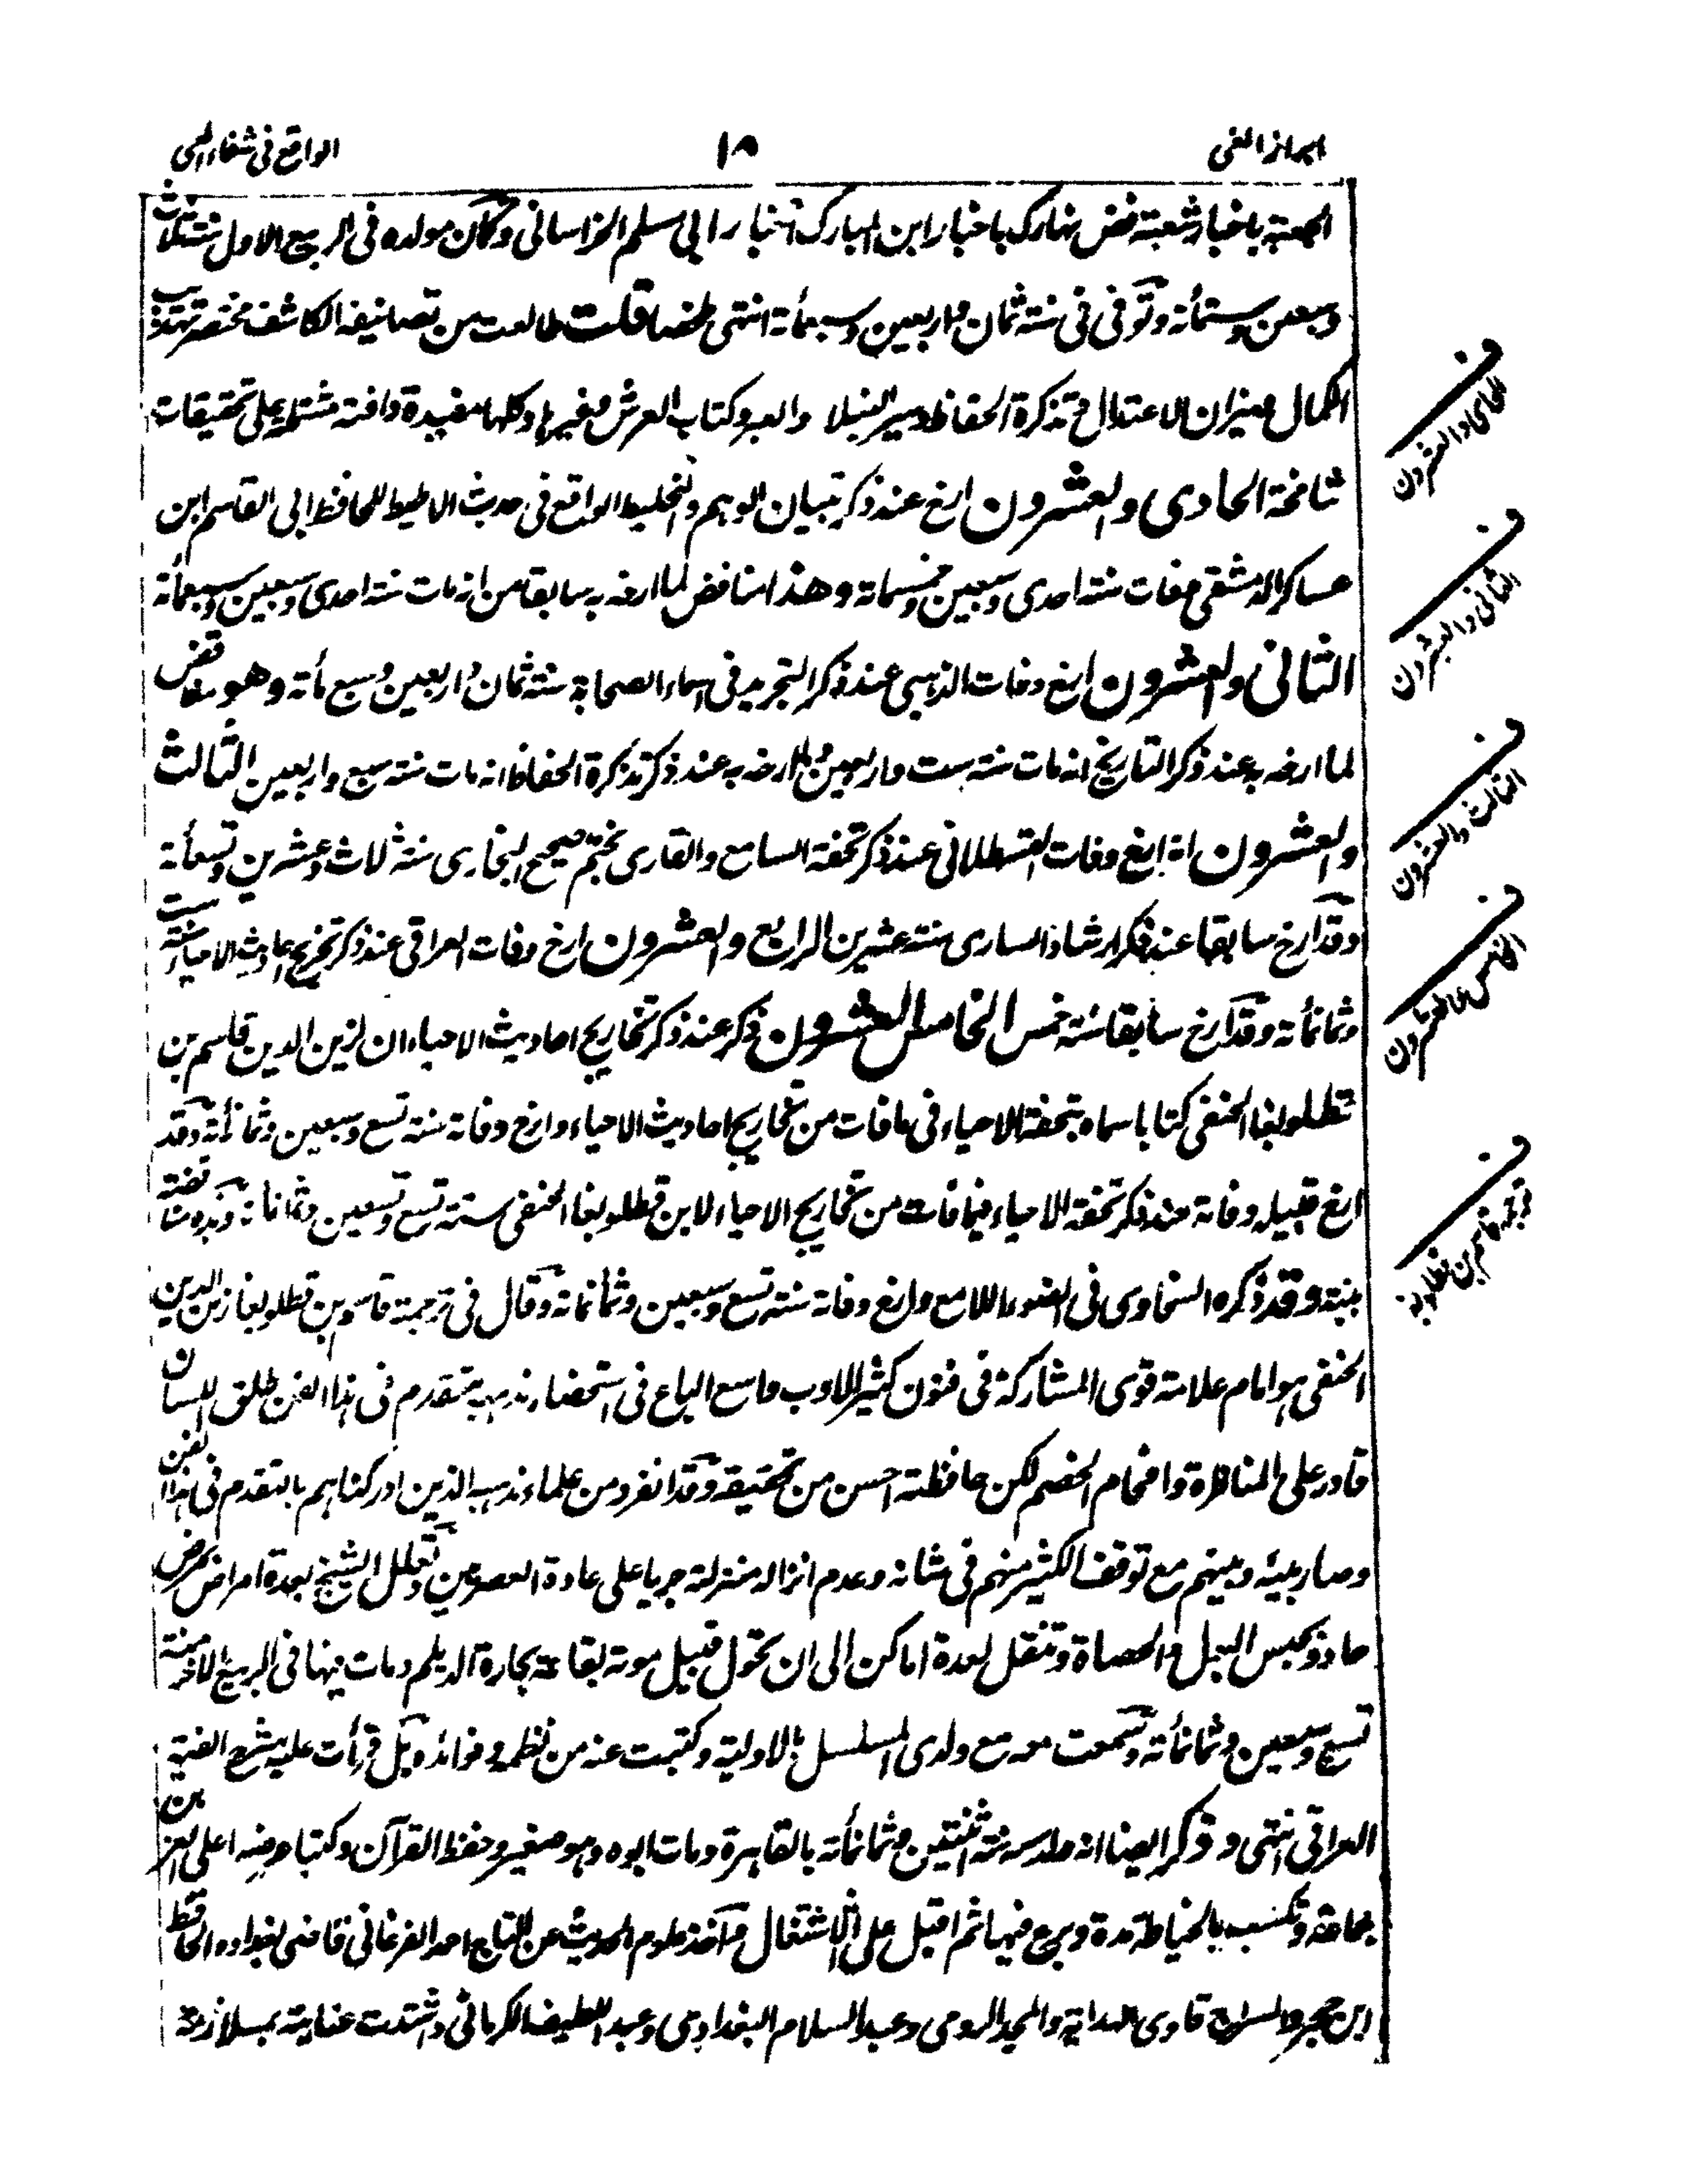 ابراز الغی
١٨
الواقع فی شفاء العی
الجمعة باخبار شعبة فض نهارک باخبار ابن المبارک اخبار ابی مسلم الخراسانی وکان مولده فی الربیع الاول سنة ثلاث
وسبعین وستمأته وتوفی فی سنة ثمان واربعین وسبعمأته انتهی ملخصا قلت طالعت من تصانیفه الکاشف مختصر تهذیب
الکمال ومیزان الاعتدال وتذکرة الحفاظ وسیر النبلا والعبر وکتاب العرش وغیرها وکلها مفیدة نافعة مشتملة علی تحقیقات
شامخة الحادی والعشرون ارخ عند ذکر تبیان الوهم والتخلیط الواقع فی حدیث الاطیط للحافظ ابی القاسم ابن
عساکر الدمشقی وفات سنة احدی وسبعین وخمسمائة وهذا مناقض لما ارخه به سابقا من انه مات سنة احدی وسبعین وسبعمأته
الثانی والعشرون ارخ وفات الذهبی عند ذکر التجرید فی اسماء الصحابة سنة ثمان واربعین وسبع مأته وهو مناقض
لما ارخه به عند ذکر التاریخ انه مات سنة ست واربعین ولما ارخه به عند ذکر تذکرة الحفاظ انه مات سنة سبع واربعین الثالث
والعشرون انه ارخ وفات القسطلانی عند ذکر تحفة السامع والقاری بختم صحیح البخاری سنة ثلاث وعشرین وتسعمأته
وقد ارخ سابقا عند ذکر ارشاد الساری سنة عشرین الرابع والعشرون ارخ وفات العراقی عند ذکر تخریج احادیث الاحیاء سنة ست
وثمانمأته وقد ارخ سابقا سنة خمس الخامس والعشرون ذکر عند ذکر تخاریج احادیث الاحیاء ان لزین الدین قاسم بن
قطلوبغا الحنفی کتابا سماه بتحفة الاحیاء فی مافات من تخاریج احادیث الاحیاء وارخ وفاته سنة تسع وسبعین وثمانمأته وقد
ارخ قبیله وفاته عند ذکر تحفة الاحیاء فیما فات من تخاریج الاحیاء لابن قطلوبغا الحنفی سنة تسع وتسعین وثمانمائة وهذه مناقضة
بینة وقد ذکره السخاوی فی الضوء اللامع وارخ وفاته سنة تسع وسبعین وثمانمائة وقال فی ترجمة قاسم بن قطلوبغا زین الدین
الحنفی هو امام علامة قوی المشارکة فی فنون کثیر الادب واسع الباع فی استحضار مذهبه متقدم فی هذا الفن طلق اللسان
قادر علی المناظرة وافحام الخصم لکن حافظته احسن من تحقیقه وقد انفرد من علماء مذهبه الذین ادرکناهم بالتقدم فی هذا الفن
وصار بینه وبینهم مع توقف الکثیر منهم فی شانه وعدم انزاله منزلته جریا علی عادة العصریین وتعلل الشیخ بعدة امراض بمرض
حاد وبحبس البول والحصاة وتنقل لعدة اماکن الی ان تحول قبیل موته بقاعة بحارة الدیلم ومات فیها فی الربیع الاخر سنة
تسع وسبعین وثمانمأته وسمعت معه مع ولدی المسلسل بالاولیة وکتبت عنه من نظمه وفوائده بل قرأت علیه شرح الفیة
العراقی انتهی وذکر ایضا انه ولد سنة ثنتین وثمانمأته بالقاهرة ومات ابوه وهو صغیر وحفظ القرآن وکتبا عرضه علی العز بن
جماعة وتکسب بالخیاطة مدة وبرع فیها ثم اقبل علی الاشتغال واخذ علوم الحدیث عن التاج احمد الفرغانی قاضی بغداد والحافظ
ابن حجر والسراج قاری الهدایة والمجد الرومی وعبد السلام البغدادی وعبد اللطیف الکرمانی واشتدت عنایته بملازمة
الحادی والعشرون
الثانی والعشرون
الثالث والعشرون
الخامس والعشرون
ترجمة قاسم بن قطلوبغا